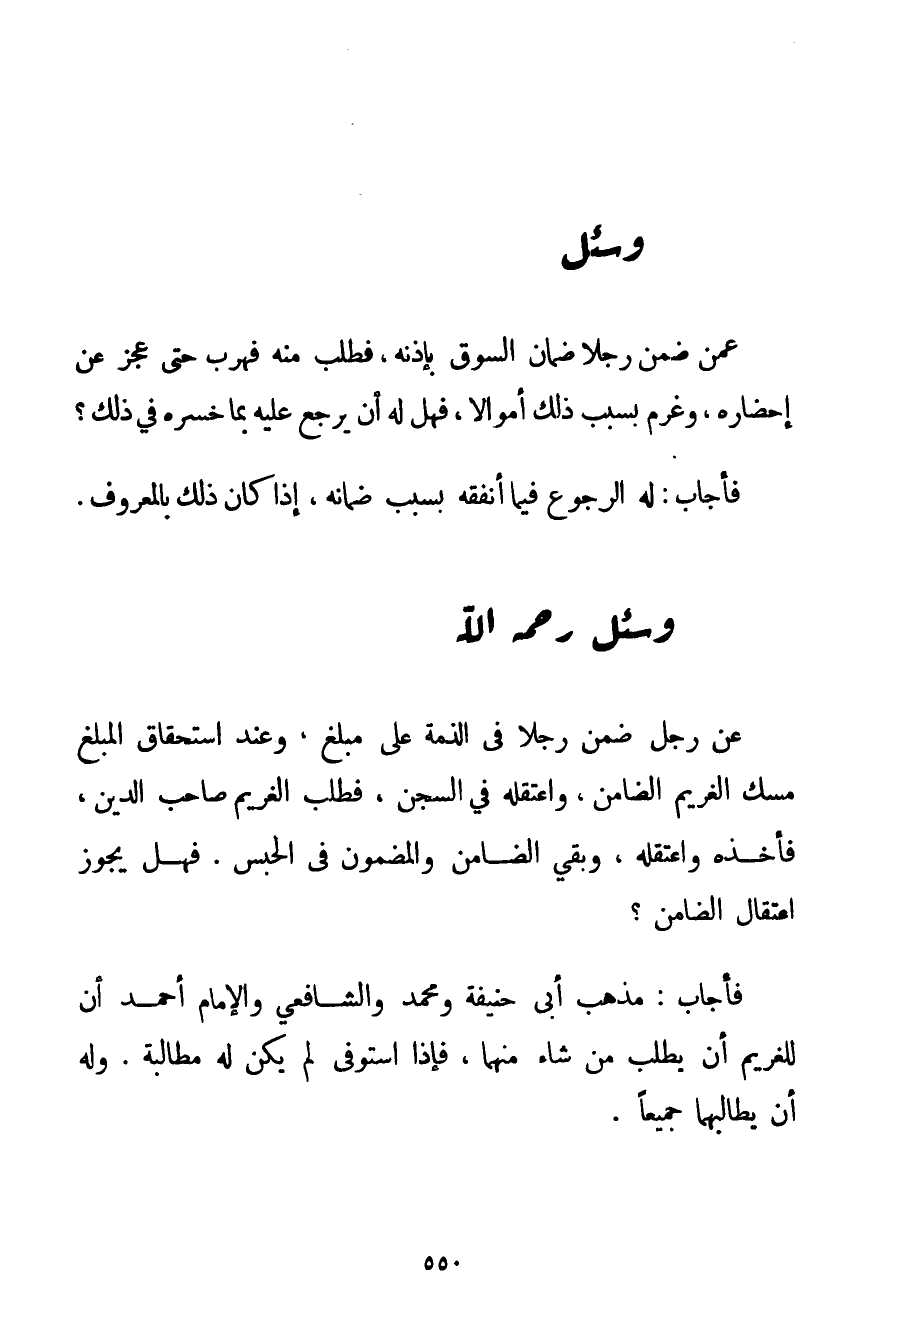 وسئل
عمن ضمن رجلا ضمان السوق بإذنه ، فطلب منه فهرب حتى عجز عن
إحضاره ، وغرم بسبب ذلك أموالا ، فهل له أن يرجع عليه بما خسره في ذلك ؟
فأجاب : له الرجوع فيما أنفقه بسبب ضمانه ، إذا كان ذلك بالمعروف .
وسئل رحمه الله
عن رجل ضمن رجلا فى الذمة على مبلغ ، وعند استحقاق المبلغ
مسك الغريم الضامن ، واعتقله في السجن ، فطلب الغريم صاحب الدين ،
فأخذه واعتقله ، وبقي الضامن والمضمون فى الحبس . فهل يجوز
اعتقال الضامن ؟
فأجاب : مذهب أبى حنيفة ومحمد والشافعي والإمام أحمد أن
للغريم أن يطلب من شاء منهما ، فإذا استوفى لم يكن له مطالبة . وله
أن يطالبهما جميعاً .
٥٥٠